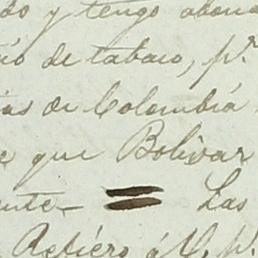 do y tengo abona
io de tabaco, p.r
ias de Colombia
e que Bolivar
ente_ = Las
Refiéro á V, p.r